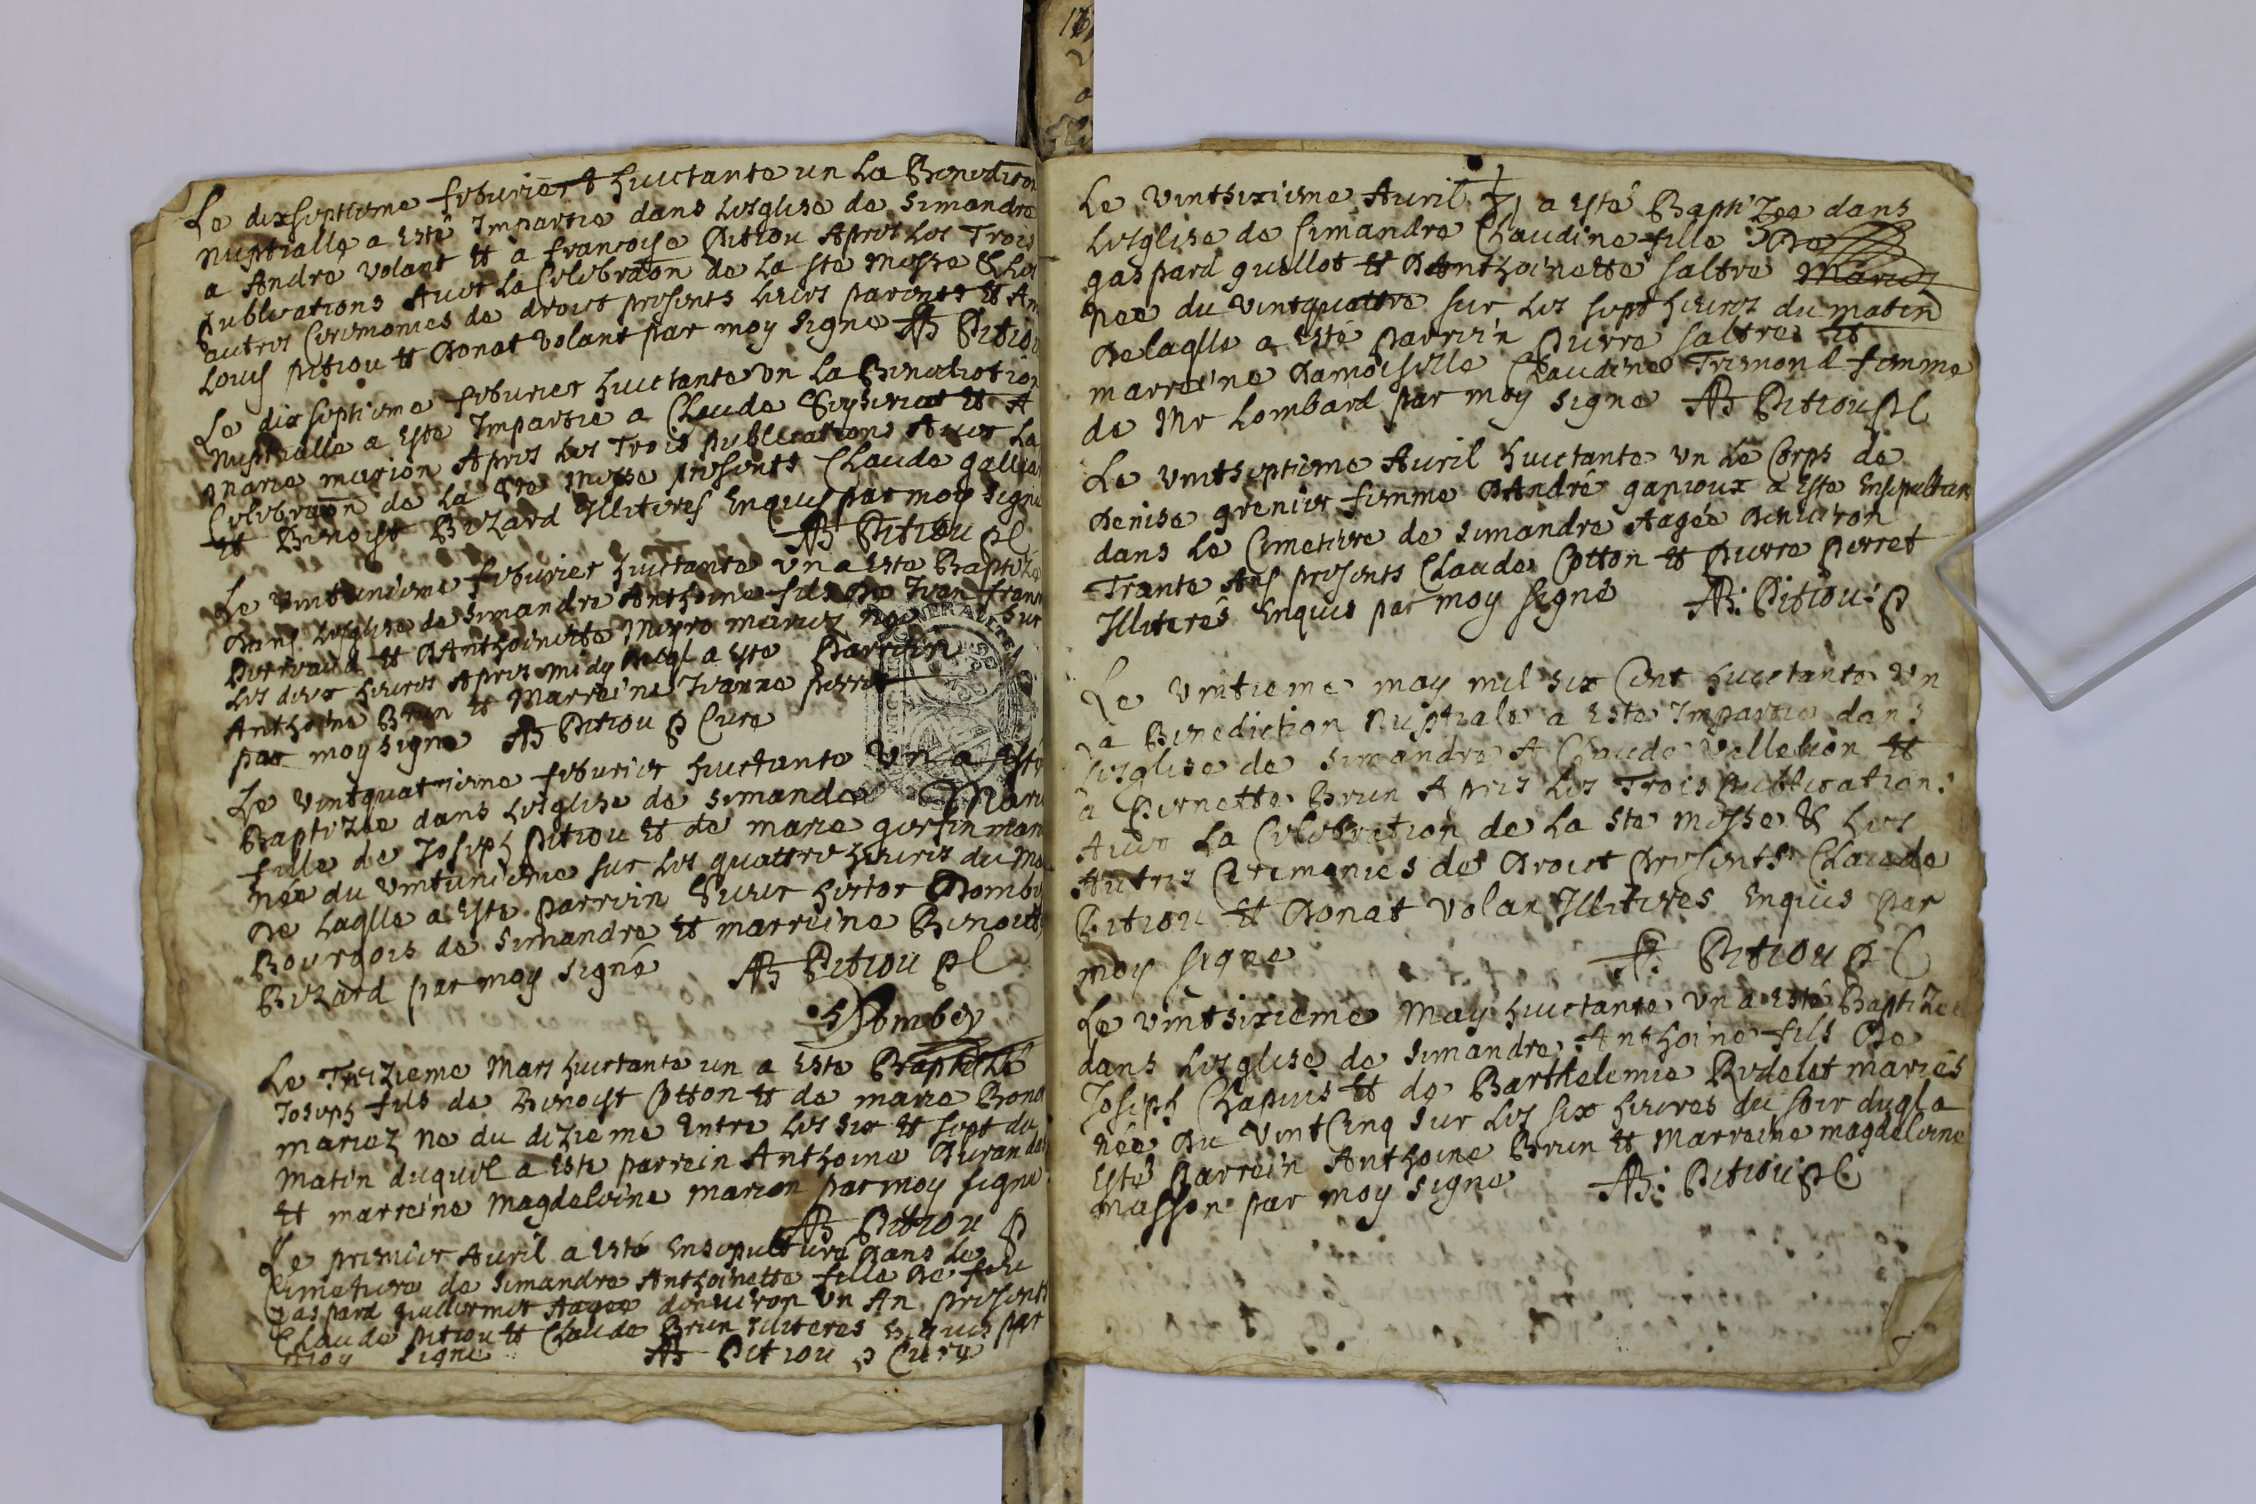 Le dixseptieme feburier huictante un La Benediction
Nuptialle a Esté Impartie dans Lesglise de Simandre
a André Volant Et a françoise Pitiou Apres Les Trois
publications Avec La Celebraon de La Ste Messe & Les
autres Ceremonies de droict presents Leurs parents Et
Louis pitiou Et Donat Volant par moy Signe AB Pitiou
Le dix septieme feburier huictante Vn La Benediction
Nuptialle a Este Impartie a Claude Et A
marie marion Apres Les Trois publications Avec La
Celebraon de La Ste Messe presents Claude
Et Benoist Buzard Illiteres Enquis par moy Signe
AB Pitiou p C
Le Vintunieme feburier huictante Vn a Este Baptizé
Dans Lesglise de Simandre Anthoine fils De Jean
Et D'Anthoinette mariez né Sur
Les deux heures Apres midy a Este Parrein
Anthoine Brun Et Marreine Jeanne perret
par moy signe AB Pitiou p Cure
Le Vintquatrieme feburier huictante Vn a Esté
Baptizée dans Lesglise de Simandre Marie
fille de Joseph Pitiou Et de marie
née du Vintunieme sur Les quattre heures du
De Laqlle a Este parrein Sieur hector Dombey
Bourgois de Simandre Et marreine Benoitte
Buzard par moy Signé AB Pitiou p C
Dombey
Le Treizieme Mars huictante un a Este Baptizé
Joseph fils de Benoist Cotton Et de marie
mariez Ne du dizieme Entre Les Six Et Sept du
Matin duquel a Este parrein Anthoine Durand
Et marreine Magdeleine marion par moy signe
AB Pitiou p
Le premier Auril a Esté Ensepulturé Dans Le
Cimetiere de Simandre Anthoinette fille De feu
Gaspard Guillermet Aagee denuiron Vn An presents
Claude pitiou Et Claude Brun Illiteres Enquis par
moy Signe AB Pitiou p Cure
Le Vintsixieme Auril a Esté Baptizée dans
Lesglise de Simandre Claudine fille De
gaspard guillot Et D'Anthoinette saltre Mariez
nee du Vintquattre sur Les sept heures du matin
De laqlle a Esté Parrein Pierre Saltre Et
marreine Damoiselle Claudine Tremond femme
de Mr Lombard par moy Signe AB Pitiou p C
Le Vintseptieme Auril huictante Vn Le Corps de
Denise grenier femme D'André ganioux a Este Ensepulturé
dans Le Cimetiere de Simandre Aagée Denuiron
Trante Ans presents Claude Cotton Et Pierre Perret
Illiterés Enquis par moy signé AB: Pitiou: p
Le Vintieme may mil six Cent huictante Vn
La Benediction Nuptiale a Este Impartie dans
Lesglise de Simandre A Claude Velletion Et
a Pernette Brun Apres Les Trois publications
Avec La Celebration de La Ste Messe & Les
Autres Ceremonies de Droict Presents Claude
Pitiou Et Donat Volan Illiteres Enquis Par
moy signe AB: Pitiou p C
Le Vintsixieme May huictante Vn a Esté Baptizé
dans Lesglise de Simandre Anthoine fils De
Joseph Chapuis Et de Barthelemie Rudelet mariés
née Du Vint Cinq Sur Les six heures du soir duql a
Esté Parrein Anthoine Brun Et Marreine magdeleine
masson par moy Signe AB: Pitiou: p C